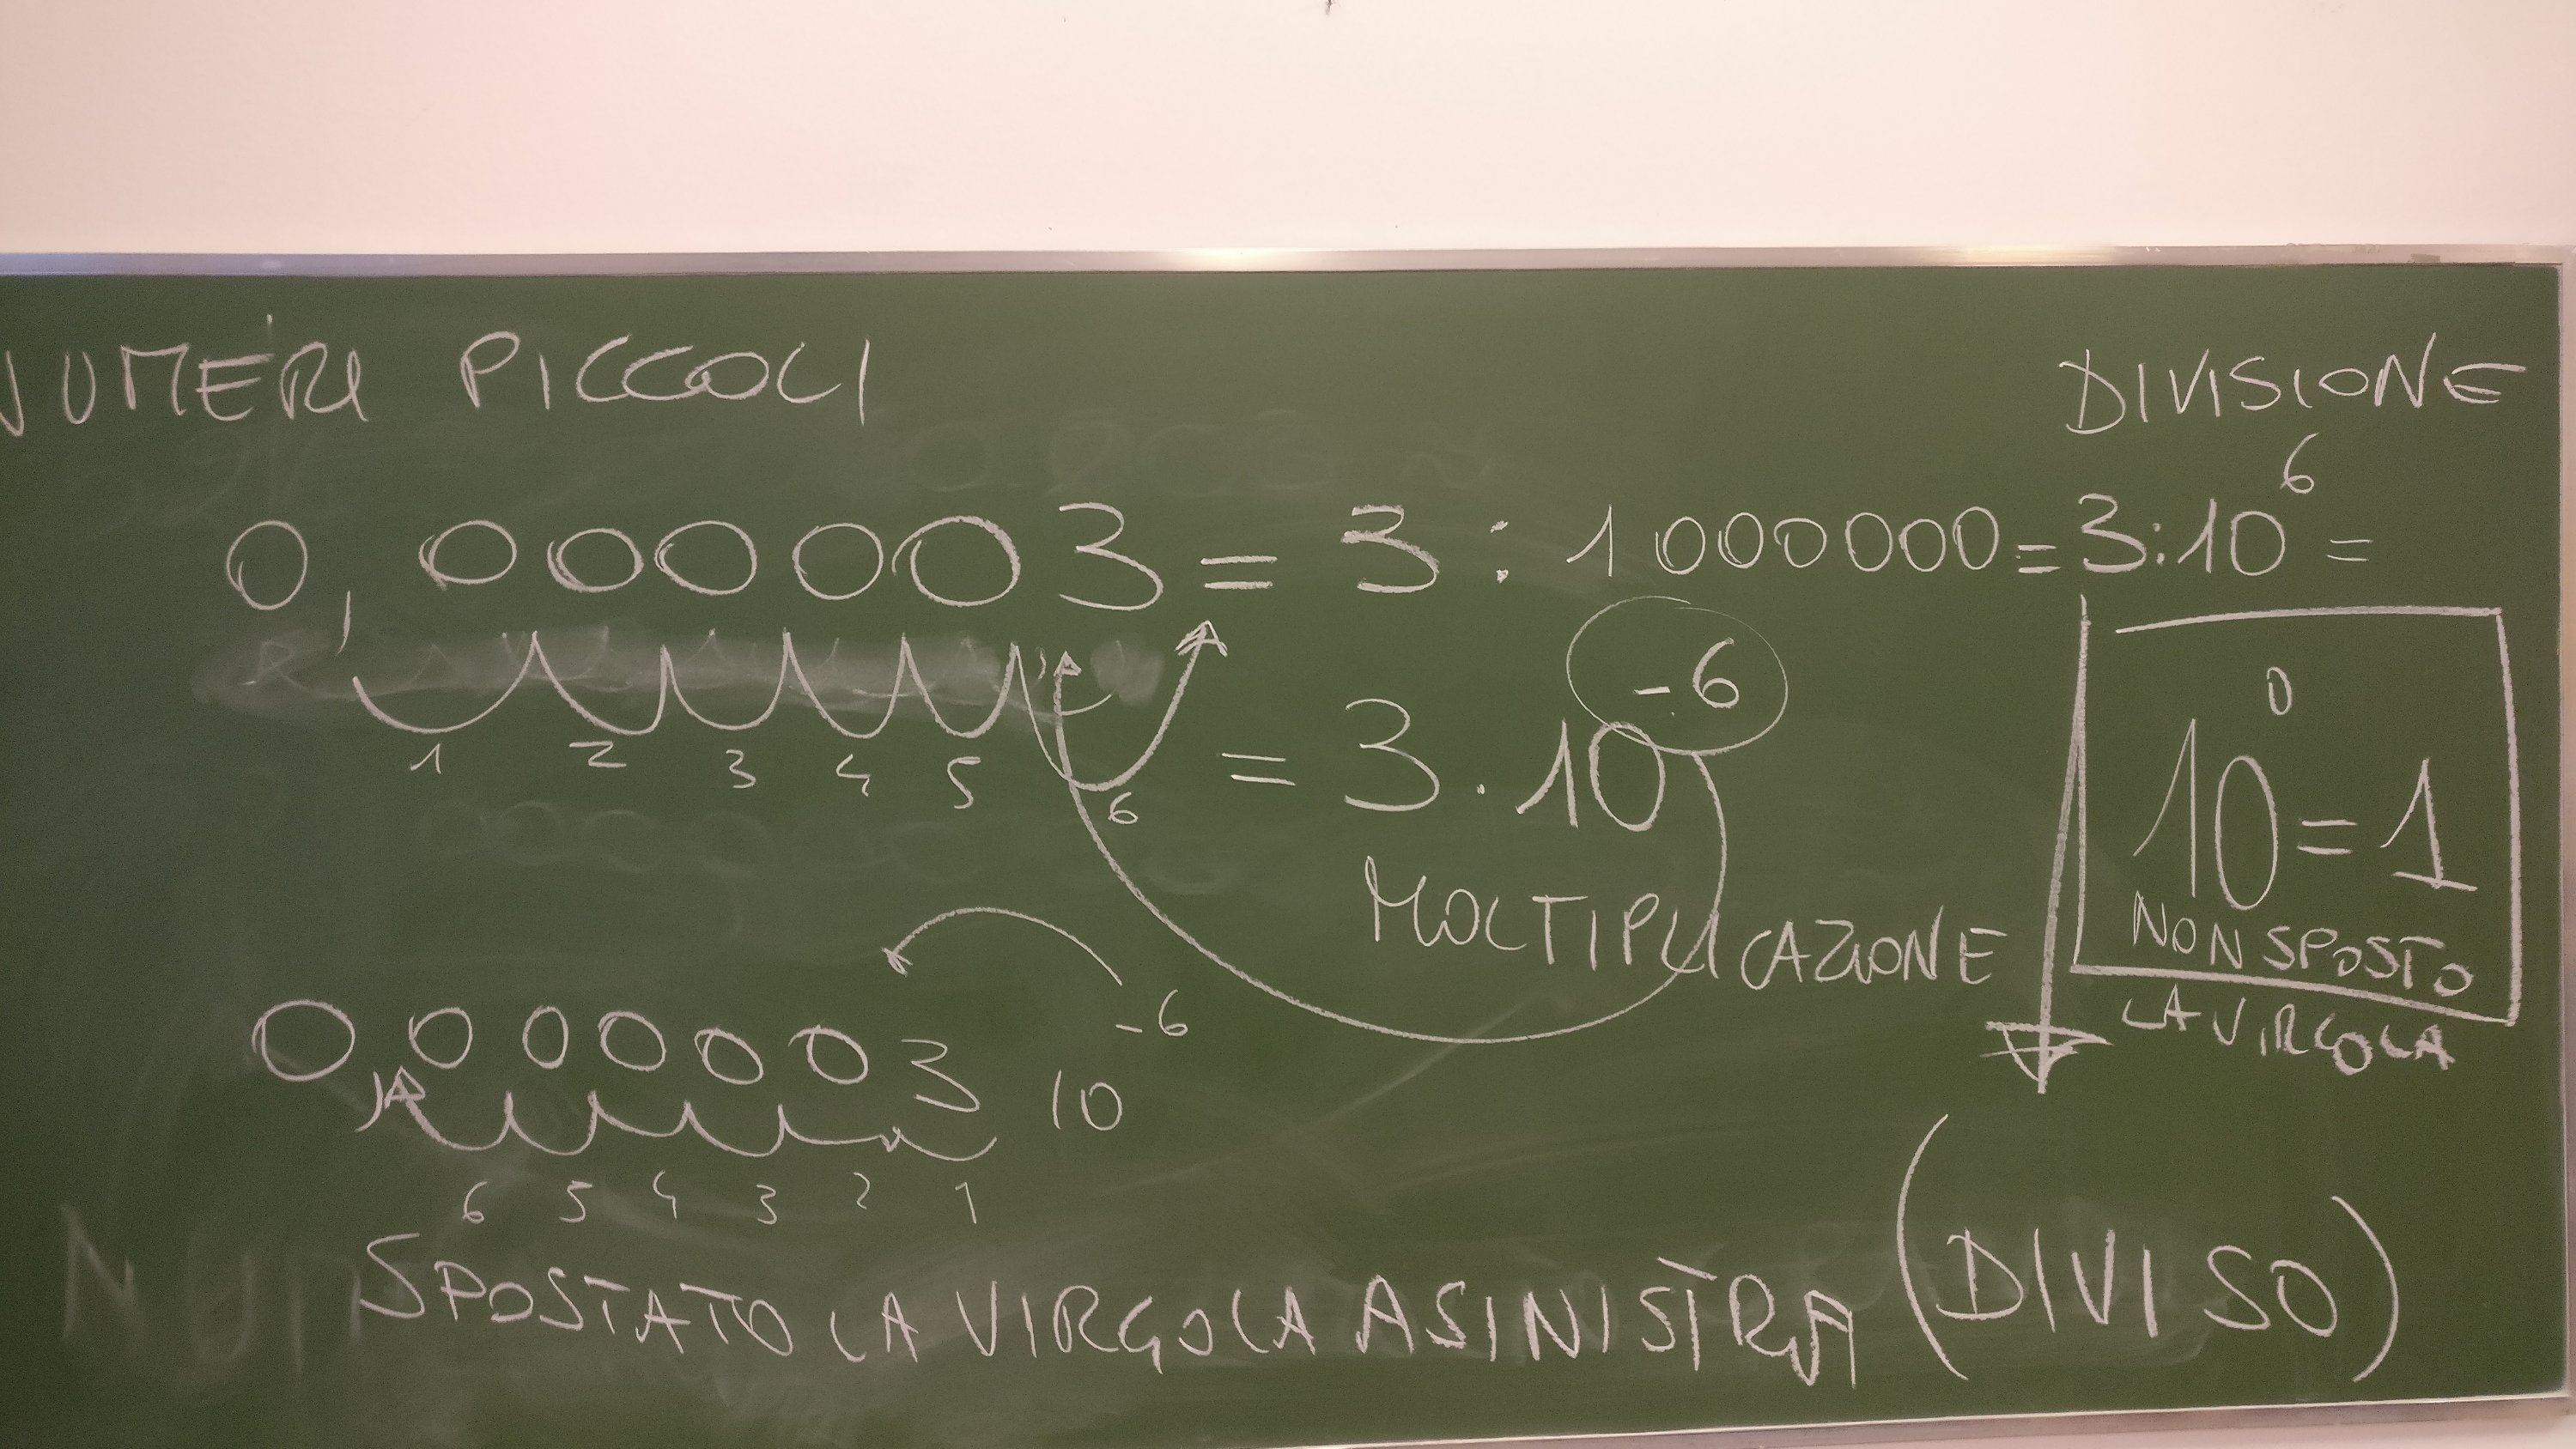 NUMERI PICCOLI
DIVISIONE
0,000003 = 3 : 1000000 = 3:10⁶ =
1 2 3 4 5 6
= 3 · 10⁻⁶
MOLTIPLICAZIONE
10⁰ = 1
NON SPOSTO
LA VIRGOLA
0,000003 10⁻⁶
6 5 4 3 2 1
SPOSTATO LA VIRGOLA A SINISTRA (DIVISO)